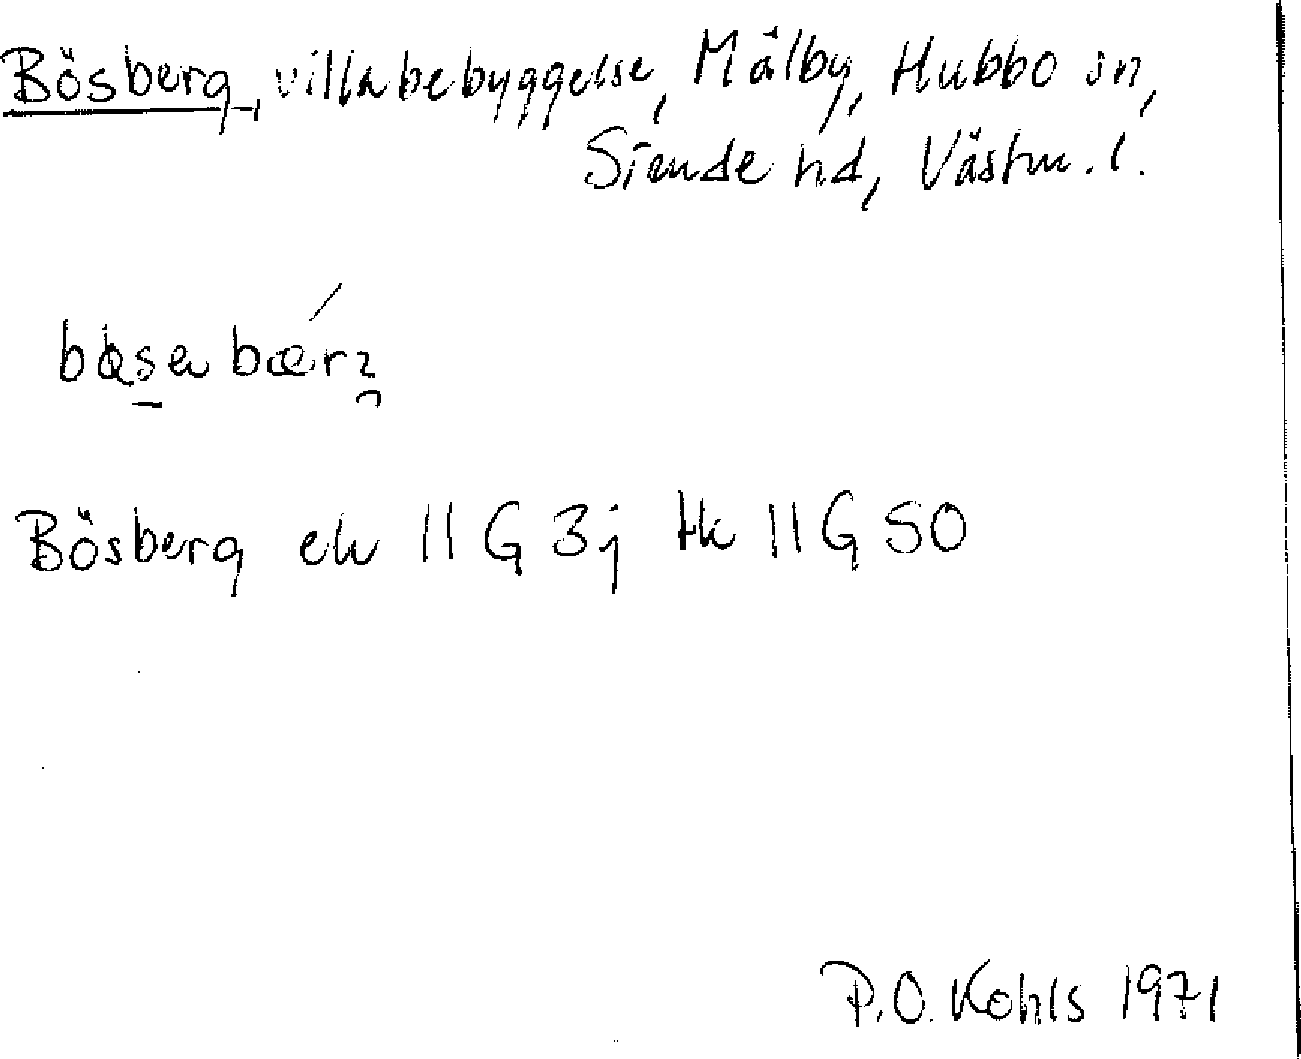 Bösberg, villabebyggelse, Målby, Hubbo sn,
Siende hd, Västm.l.
Bösberg ek 11 G 3j tk 11 G SO
P.O. Kohls 1971